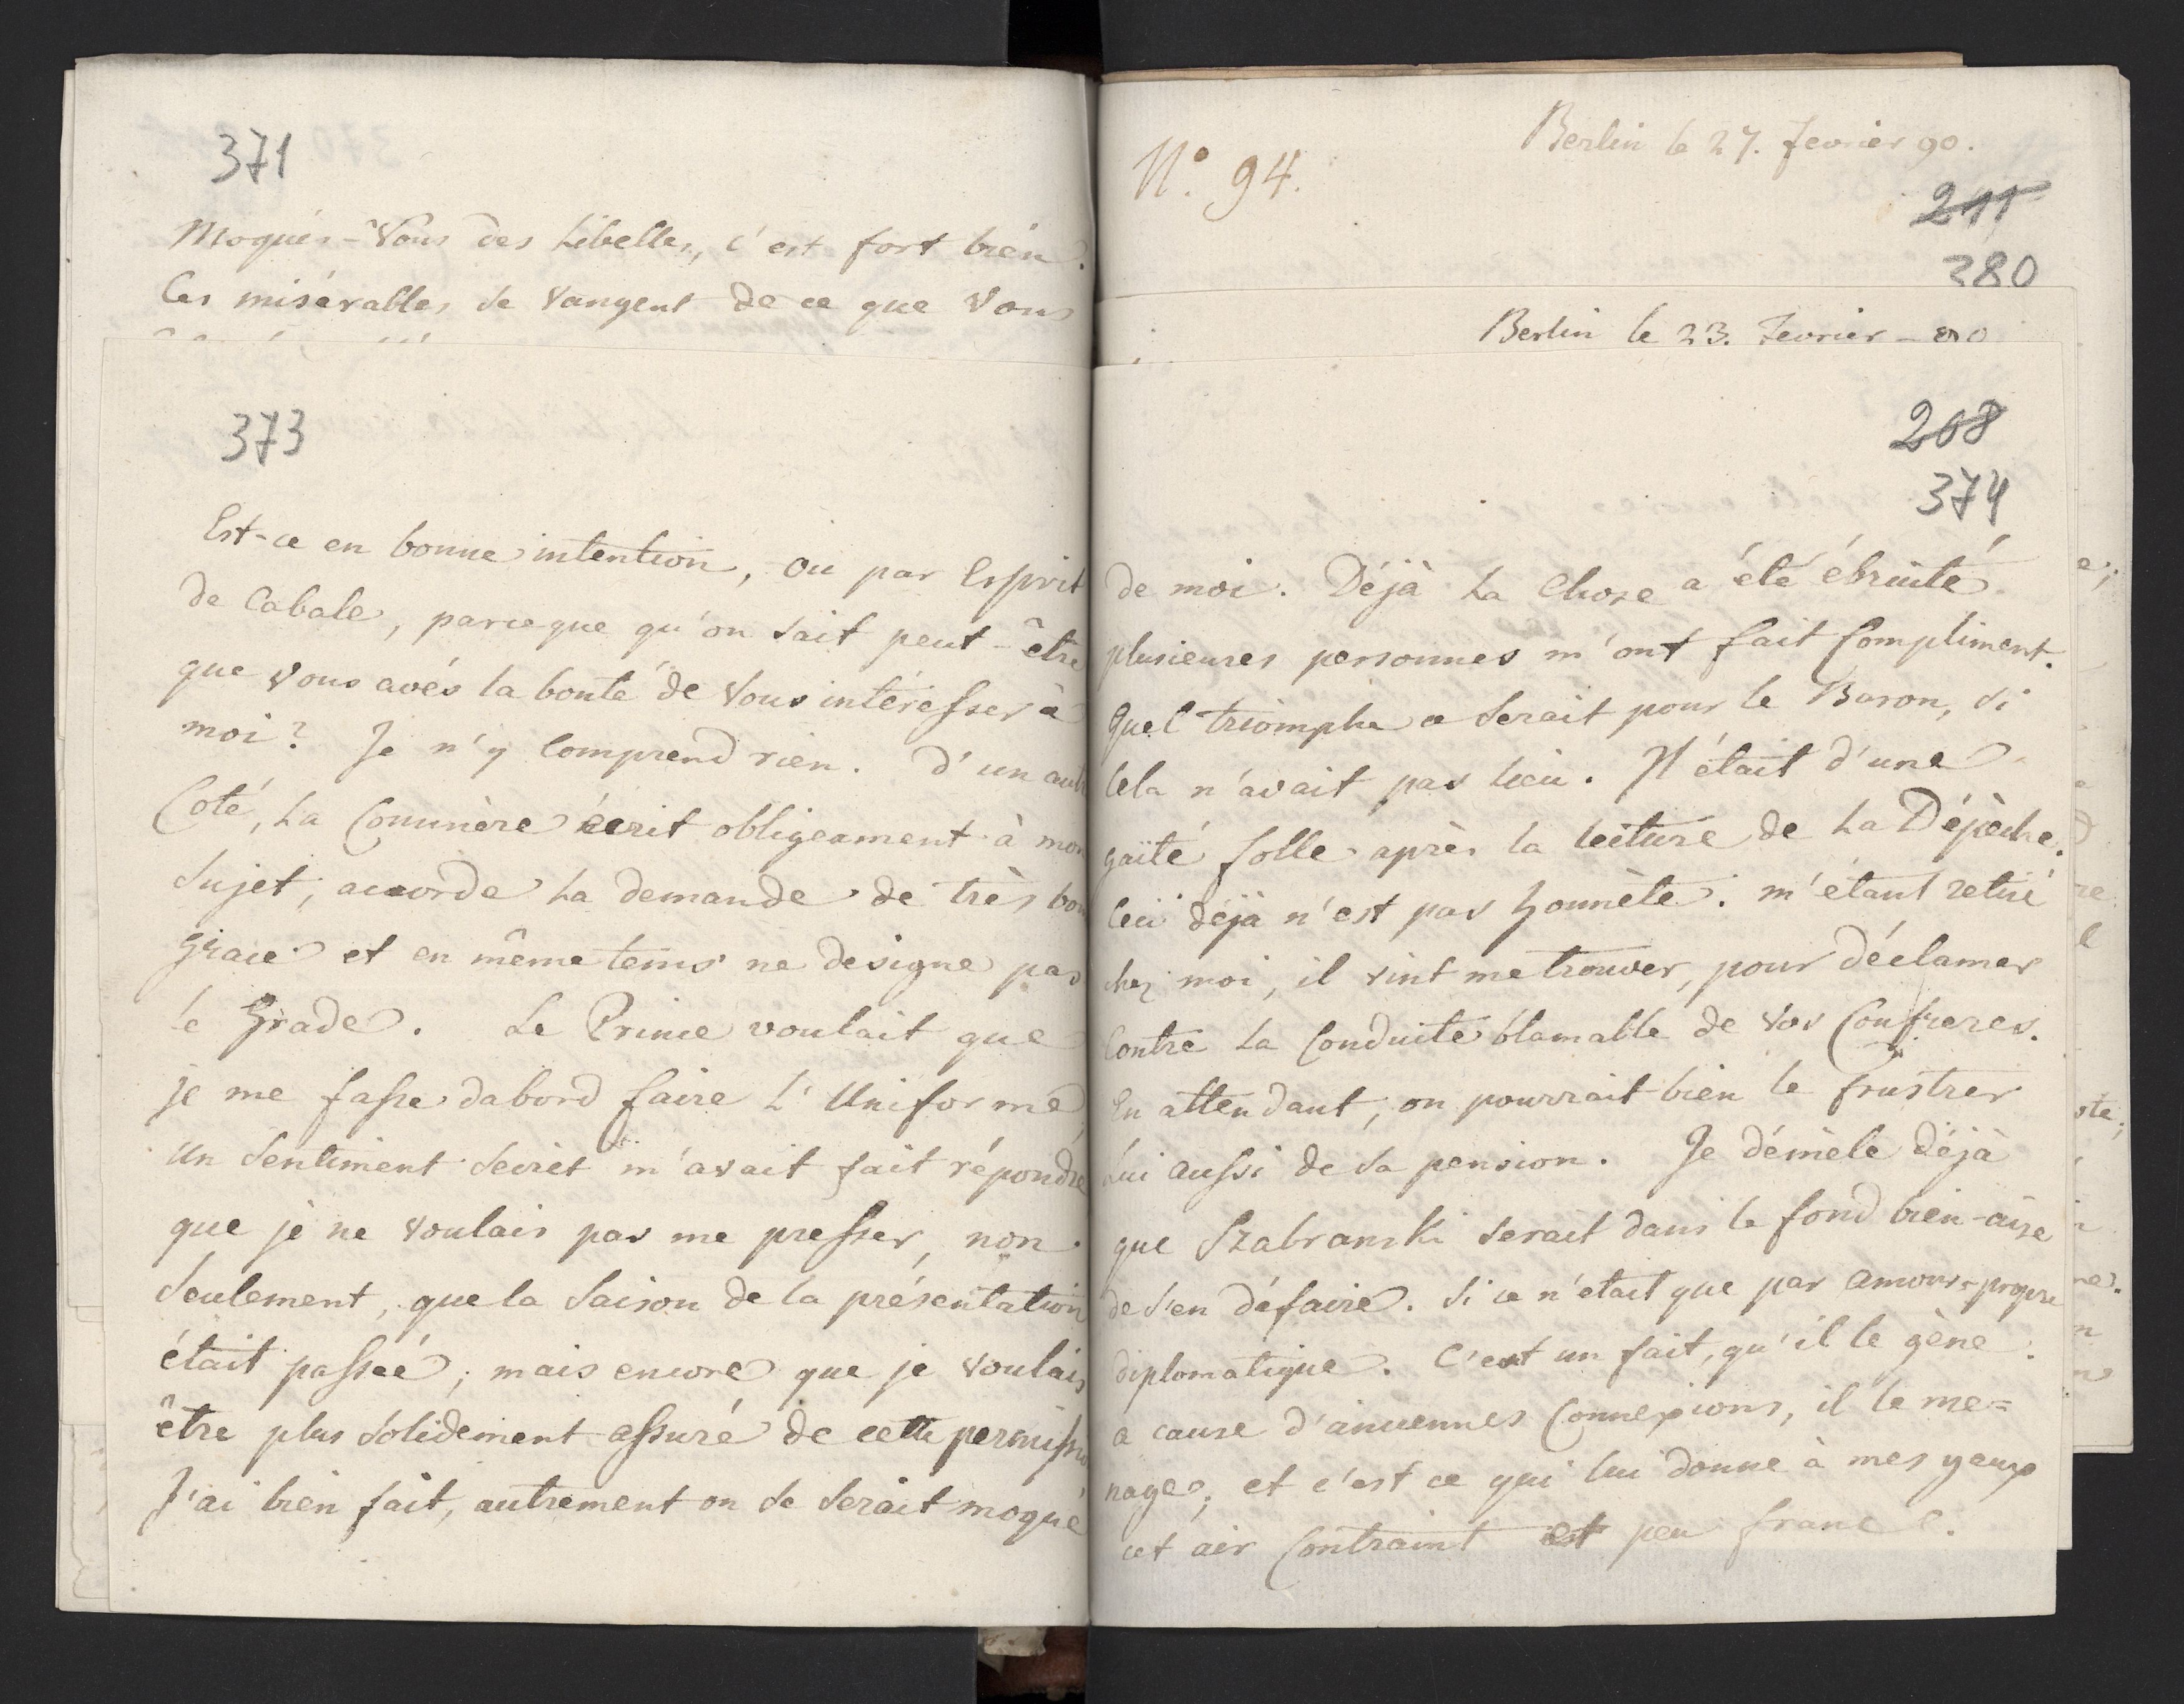 371
Moqués-Vous des Libelles, c'est fort bien.
Ces misérables se vangent de ce que Vous
373
Est-ce en bonne intention, ou par Esprit
de Cabale, parceque qu'on sait peut-être
que Vous avés la bonté de Vous intéresser à
moi? Je n'y Comprend rien. D'un autr
Coté, La Commère écrit obligeament à mon
Sujet; accorde La demande de très bon
Grace et en même tems ne designe pas
le Grade. Le Prince voulait que
je me fasse dabord faire L'Uniforme,
Un Sentiment Secret m'avait fait répondre
que je ne Voulais pas me presser, non
Seulement, que la Saison de la présentation
était passée; mais encore que je Voulais
être plus Solidement assuré de cette permissio
J'ai bien fait, autrement on Se Serait moqué
N.° 94.
Berlin le 27. fevrier 90.
211
380
Berlin le 23. Fevrier - 90
208
374
de moi. Déjà La Chose a été ébruité
plusieures personnes m'ont fait Compliment.
Quel triomphe ce Serait pour le Baron, Si
Cela n'avait pas Lieu. Il était d'une
gaïté folle après la lecture de La Dépèche.
Ceci déjà n'est pas honnète. m'étant retiré
chez moi, il vint me trouver, pour déclamer
Contre La Conduite blamable de Vos Confreres.
En attendant, on pourrait bien le frustrer
Lui aussi de Sa pension. Je démèle Déjà
que Szabranski Serait dans le fond bien-aise
de S'en défaire. Si ce n'était que par amour-propre
diplomatique. C'est un fait, qu'il le gène.
a cause d'anciennes Connexions, il le me=
nage; et c'est ce qui lui donne à mes yeux
cet air Contraint et peu franc